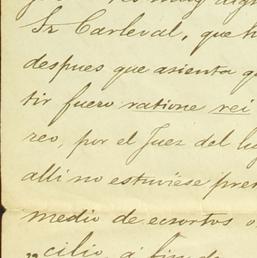 Sr Carleval, que h
despues que asienta q
tir fuero ratione rei
reo, por el Juez del lu
alli no estuviese pre
medio de ecsortos o
cilio, á fin de